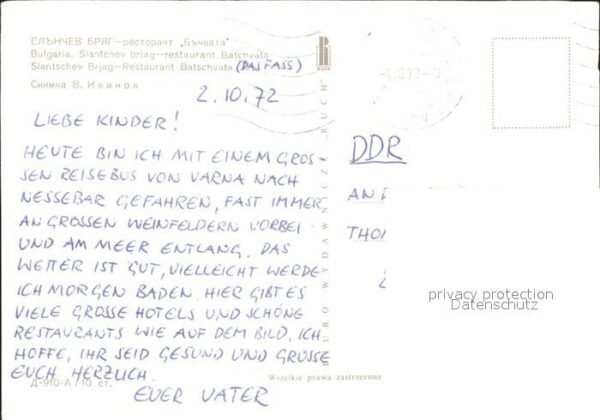 СЛЪНЧЕВ БРЯГ—ресторант „Бъчвата"
Bulgaria, Slantchev briag—restaurant Batchvata
Slantschev Brjag—Restaurant Batschvata (DAS FASS)
Снимка В. Иванов
2.10.72
LIEBE KINDER!
HEUTE BIN ICH MIT EINEM GROS-
SEN REISEBUS VON VARNA NACH
NESSEBAR GEFAHREN, FAST IMMER
AN GROSSEN WEINFELDERN VORBEI
UND AM MEER ENTLANG. DAS
WETTER IST GUT, VIELLEICHT WERDE
ICH MORGEN BADEN. HIER GIBT ES
VIELE GROSSE HOTELS UND SCHÖNE
RESTAURANTS WIE AUF DEM BILD. ICH
HOFFE, IHR SEID GESUND UND GRÜSSE
EUCH HERZLICH.
EUER VATER
Д-910-А/10 ст.
Wszelkie prawa zastrzeżone
BIURO WYDAWNICZE „RUCH"
DDR
AN
THO
privacy protection
Datenschutz